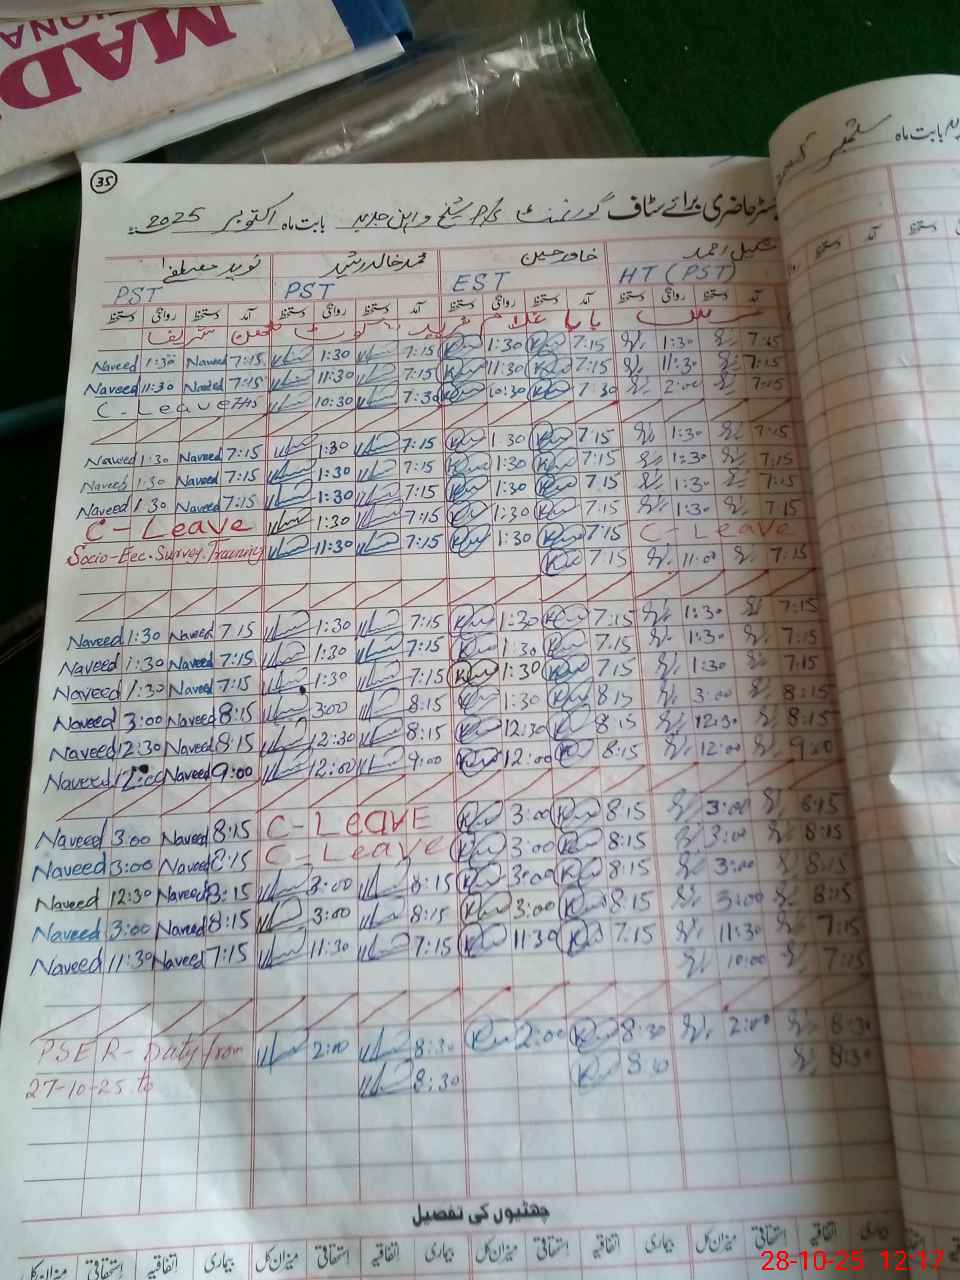 MAD
IONA
35
رجسٹر حاضری برائے سٹاف گورنمنٹ P/S شیخ واہن جدید بابت ماہ اکتوبر 2025
بابت ماہ ستمبر
شکیل احمد خاور حسین محمد خالد رشید نوید مصطفےٰ
HT (PST) EST PST PST
آمد دستخط روانگی دستخط آمد دستخط روانگی دستخط آمد دستخط روانگی دستخط آمد دستخط روانگی دستخط
عرس بابا غلام فرید کوٹ مٹھن شریف
Naveed 1:30 Naveed 7:15 1:30 7:15 1:30 7:15 1:30 7:15
Naveed 11:30 Naveed 7:15 11:30 7:15 11:30 7:15 11:30 7:15
C - Leave 7:45 10:30 7:30 10:30 7:30 2:00 7:15
Naveed 1:30 Naveed 7:15 1:30 7:15 1:30 7:15 1:30 7:15
Naveed 1:30 Naveed 7:15 1:30 7:15 1:30 7:15 1:30 7:15
Naveed 1:30 Naveed 7:15 1:30 7:15 1:30 7:15 1:30 7:15
C - Leave 1:30 7:15 1:30 7:15 1:30 7:15
Socio-Eec. Survey. Training 11:30 7:15 1:30 7:15 C - Leave
7:15 11:00 7:15
Naveed 1:30 Naveed 7:15 1:30 7:15 1:30 7:15 1:30 7:15
Naveed 1:30 Naveed 7:15 1:30 7:15 1:30 7:15 1:30 7:15
Naveed 1:30 Naveed 7:15 1:30 7:15 1:30 7:15 1:30 7:15
Naveed 3:00 Naveed 8:15 3:00 8:15 1:30 8:15 3:00 8:15
Naveed 12:30 Naveed 8:15 12:30 8:15 12:30 8:15 12:30 8:15
Naveed 12:00 Naveed 9:00 12:00 9:00 12:00 8:15 12:00 9:00
Naveed 3:00 Naveed 8:15 C - LeavE 3:00 8:15 3:00 8:15
Naveed 3:00 Naveed 8:15 C - Leave 3:00 8:15 3:00 8:15
Naveed 12:30 Naveed 8:15 3:00 8:15 3:00 8:15 3:00 8:15
Naveed 3:00 Naveed 8:15 3:00 8:15 3:00 8:15 3:00 8:15
Naveed 11:30 Naveed 7:15 11:30 7:15 11:30 7:15 11:30 7:15
10:00 7:15
PSER - Duty from 2:00 8:30 2:00 8:30 2:00 8:30
27-10-25 to 8:30 8:30 8:30
چھٹیوں کی تفصیل
بیماری اتفاقیہ استحقاقی میزان کل بیماری اتفاقیہ استحقاقی میزان کل بیماری اتفاقیہ استحقاقی میزان کل بیماری اتفاقیہ استحقاقی میزان کل
28-10-25 12:17